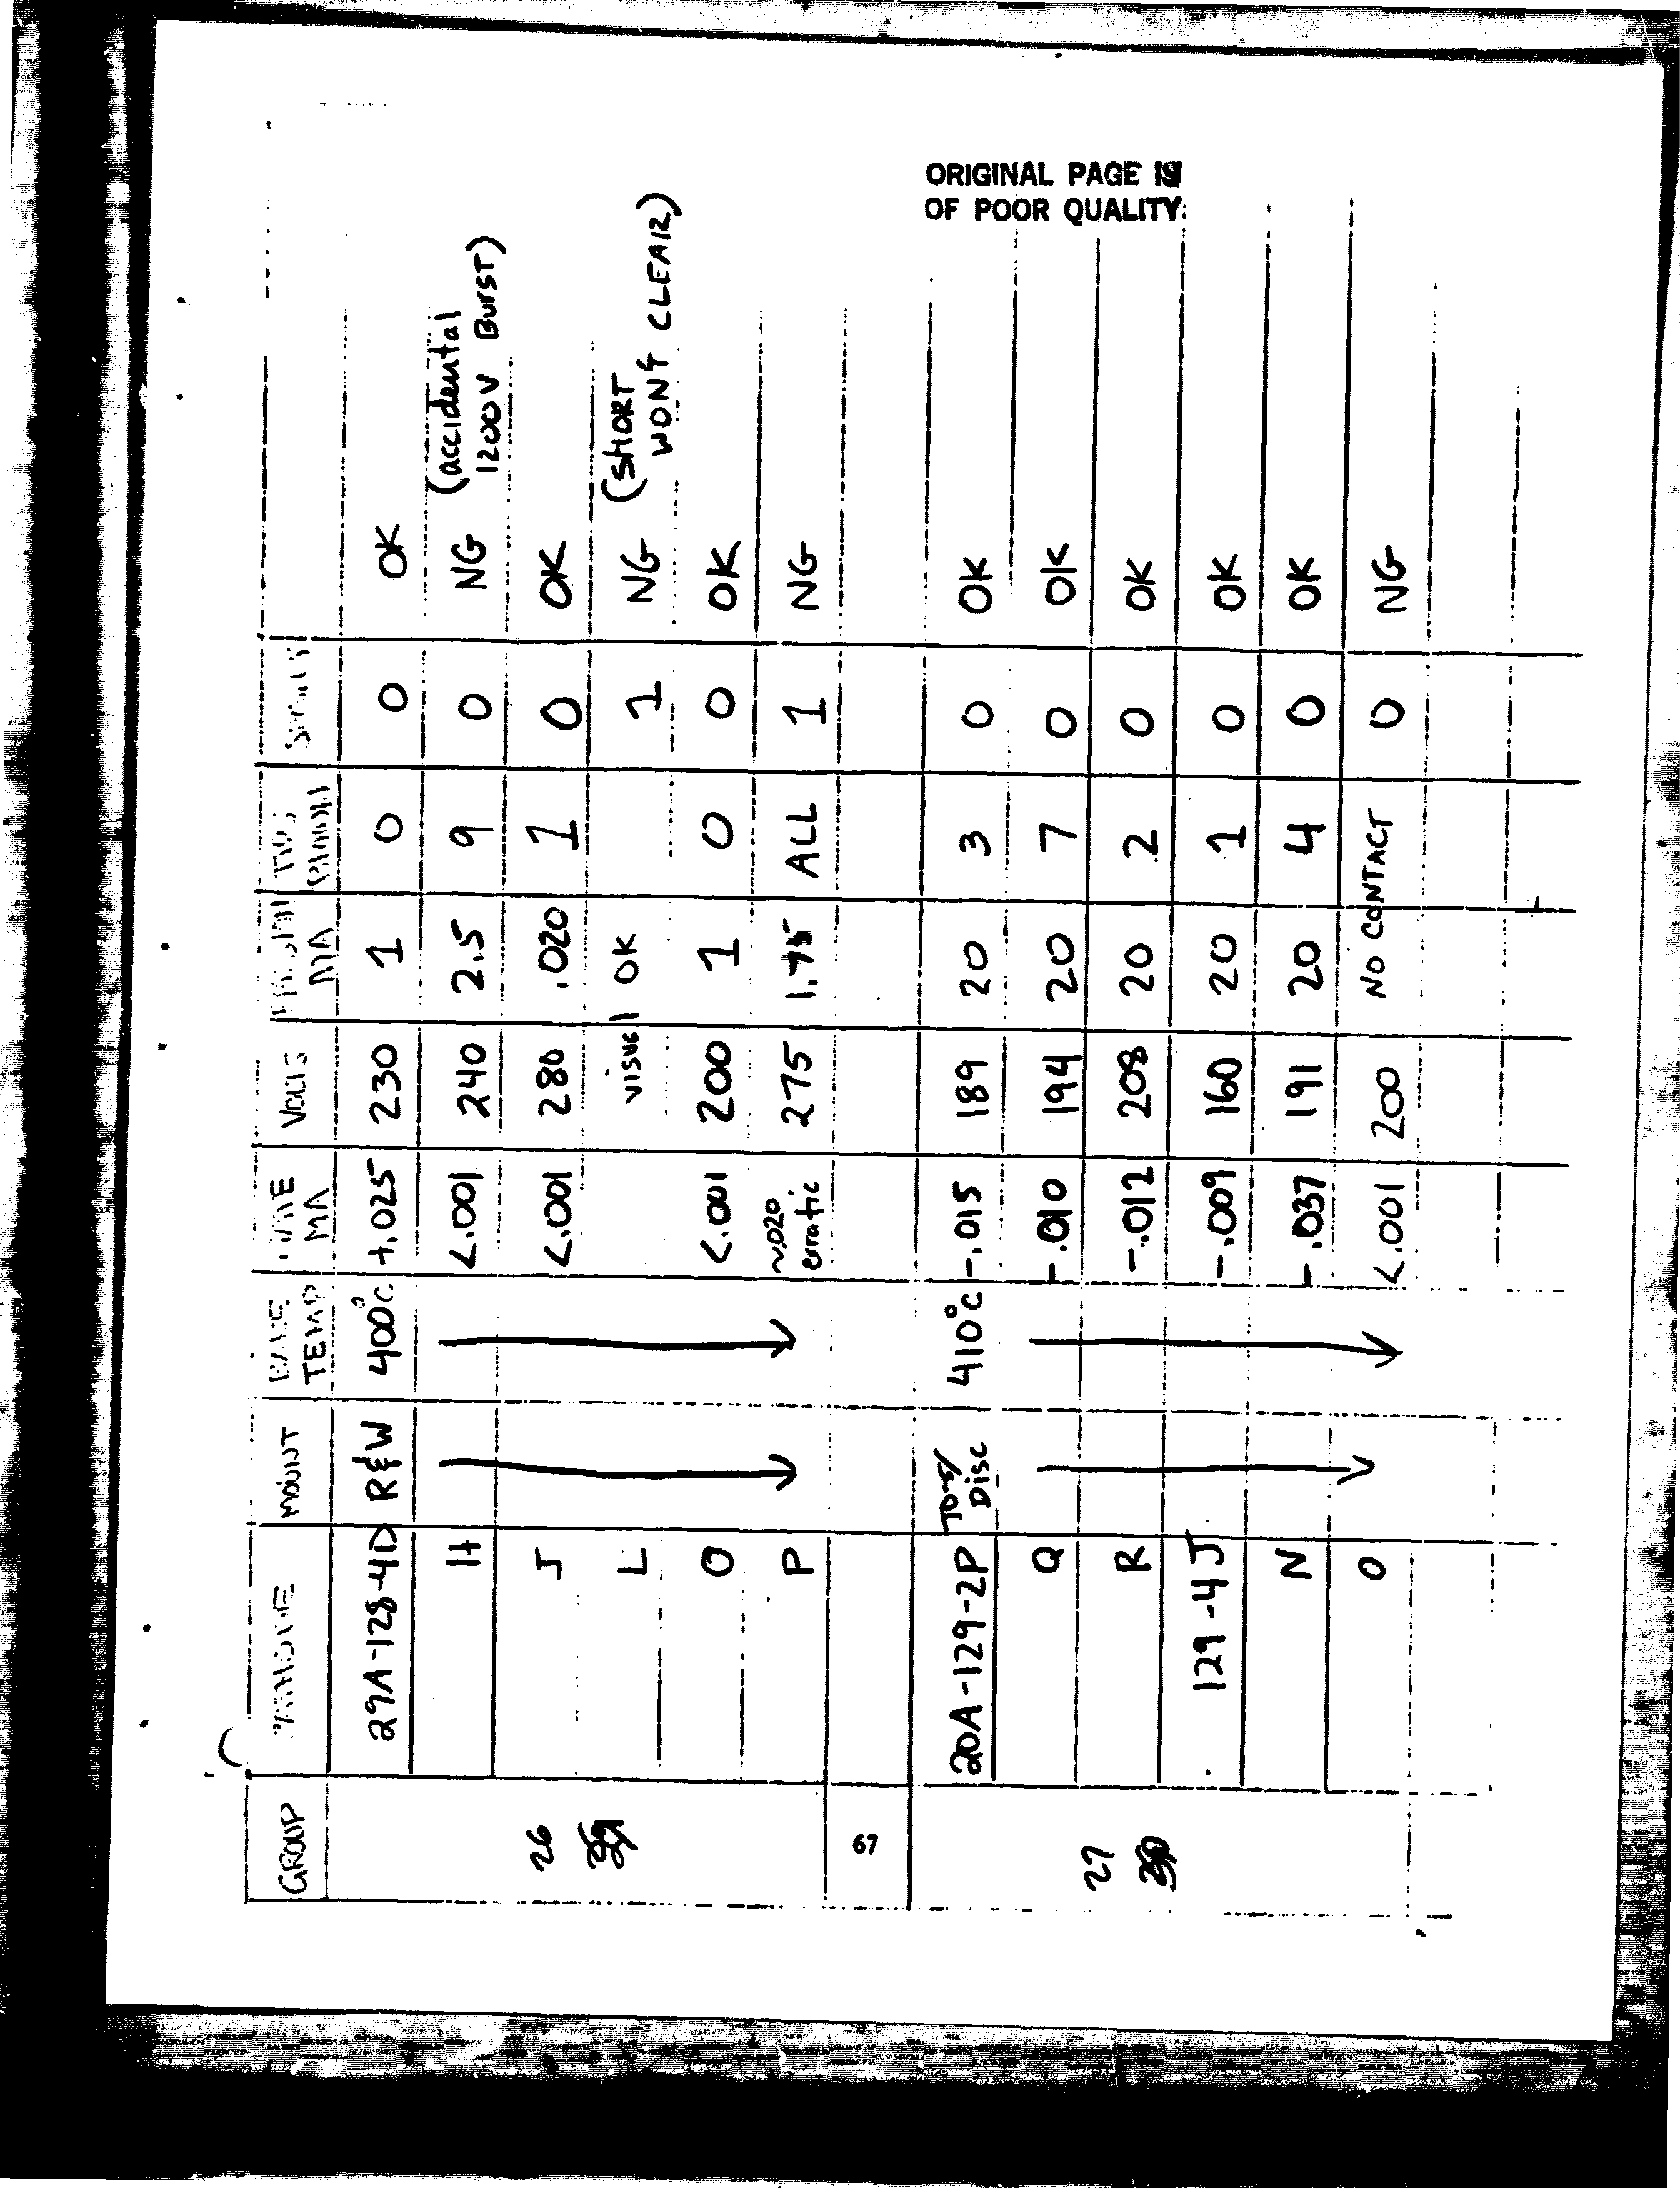 ORIGINAL PAGE IS
OF POOR QUALITY
GROUP MOUNT TEMP MA VOLTS MA
29A-128-4D R&W 400°C +.025 230 1 0 0 OK
H <.001 240 2.5 9 0 NG (accidental
1200V Burst)
26 J <.001 280 .020 1 0 OK
L visual OK 1 NG (SHORT
WONT CLEAR)
O <.001 200 1 0 0 OK
P ~.020 erratic 275 1.75 ALL 1 NG
67
20A-129-2P TO-5/ Disc 410°C -.015 189 20 3 0 OK
Q -.010 194 20 7 0 OK
27 R -.012 208 20 2 0 OK
129-4J -.009 160 20 1 0 OK
N -.037 191 20 4 0 OK
O <.001 200 NO CONTACT 0 NG